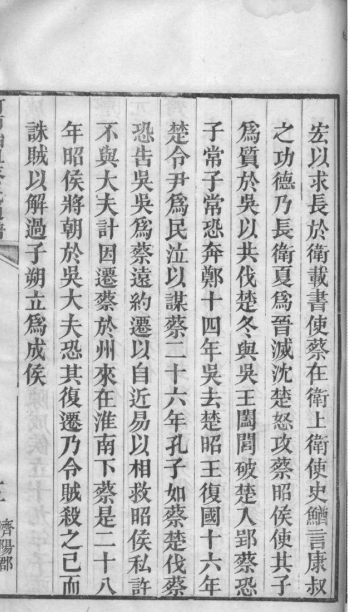 宏以求長於衛載書使蔡在衛上衛使史鰌言康叔
之功德乃長衛夏爲晉滅沈楚怒攻蔡昭侯使其子
爲質於吳以共伐楚冬與吳王闔閭破楚入郢蔡恐
子常子常恐奔鄭十四年吳去楚昭王復國十六年
楚令尹爲民泣以謀蔡二十六年孔子如蔡楚伐蔡
恐告吳吳爲蔡遠約遷以自近易以相救昭侯私許
不與大夫計因遷蔡於州來在淮南下蔡是二十八
年昭侯將朝於吳大夫恐其復遷乃令賊殺之已而
誅賊以解過子朔立爲成侯
濟陽郡